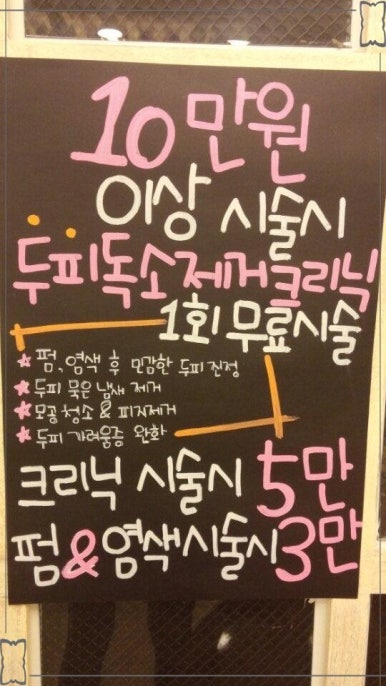 10만원
이상 시술시
두피독소제거크리닉
1회 무료시술
펌, 염색 후 민감한 두피 진정
두피 묵은 냄새 제거
모공 청소 & 피지제거
두피 가려움증 완화
크리닉 시술시 5만
펌&염색시술시3만